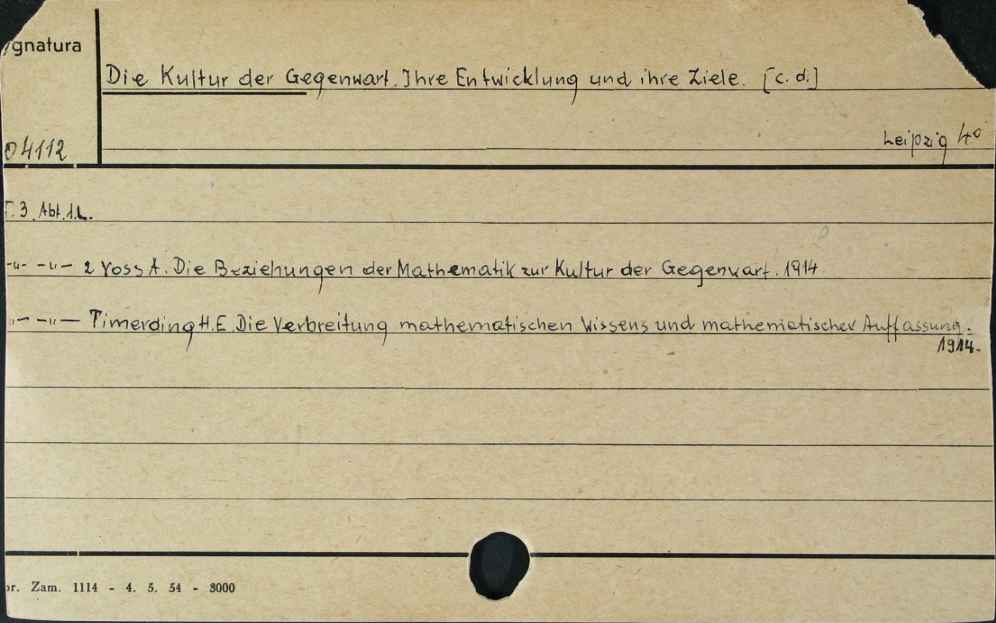 ygnatura
Die Kultur der Gegenwart. Ihre Entwicklung und ihre Ziele. [c. d.]
04112
Leipzig 4°
T. 3. Abt. 1. L.
-"- -"- 2 Voss A. Die Beziehungen der Mathematik zur Kultur der Gegenwart. 1914
"- -"- Timerding H.E. Die Verbreitung mathematischen Wissens und mathematischer Auffassung.
1914.
or. Zam. 1114 - 4. 5. 54 - 3000